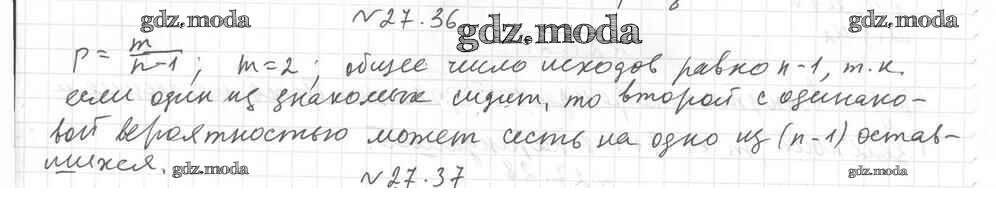 №27.36
gdz.moda gdz.moda
p = m/(n-1); m=2; общее число исходов равно n-1, т.к.
если один из знакомых сидит, то второй с одинако-
вой вероятностью может сесть на одно из (n-1) остав-
шихся. gdz.moda gdz.moda
№27.37
gdz.moda